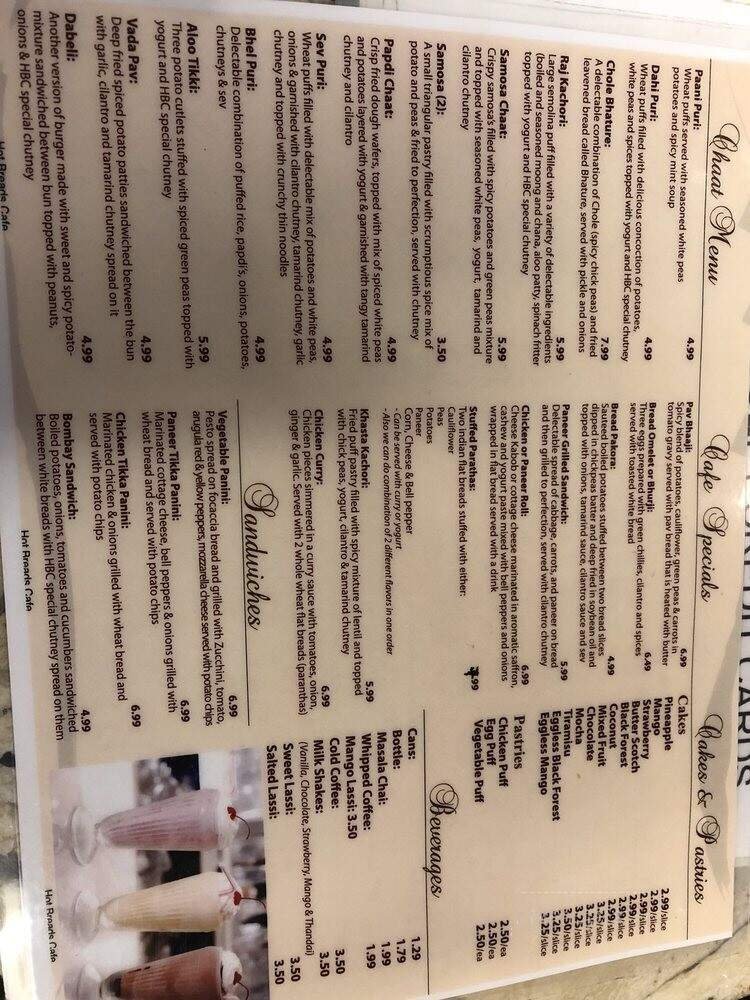 Chaat Menu
Paani Puri: 4.99
Wheat puffs served with seasoned white peas
potatoes and spicy mint soup
Dahi Puri: 4.99
Wheat puffs filled with delicious concoction of potatoes,
white peas and spices topped with yogurt and HBC special chutney
Chole Bhature: 7.99
A delectable combination of Chole (spicy chick peas) and fried
leavened bread called Bhature, served with pickle and onions
Raj Kachori: 5.99
Large semolina puff filled with a variety of delectable ingredients
(boiled and seasoned moong and chana, aloo patty, spinach fritter
topped with yogurt and HBC special chutney
Samosa Chaat: 5.99
Crispy samosa's filled with spicy potatoes and green peas mixture
and topped with seasoned white peas, yogurt, tamarind and
cilantro chutney
Samosa (2): 3.50
A small triangular pastry filled with scrumptious spice mix of
potato and peas & fried to perfection, served with chutney
Papdi Chaat: 4.99
Crisp fried dough wafers, topped with mix of spiced white peas
and potatoes layered with yogurt & garnished with tangy tamarind
chutney and cilantro
Sev Puri: 4.99
Wheat puffs filled with delectable mix of potatoes and white peas,
onions & garnished with cilantro chutney, tamarind chutney, garlic
chutney and topped with crunchy thin noodles
Bhel Puri: 4.99
Delectable combination of puffed rice, papdi's, onions, potatoes,
chutneys & sev
Aloo Tikki: 5.99
Three potato cutlets stuffed with spiced green peas topped with
yogurt and HBC special chutney
Vada Pav: 4.99
Deep fried spiced potato patties sandwiched between the bun
with garlic, cilantro and tamarind chutney spread on it
Dabeli: 4.99
Another version of burger made with sweet and spicy potato-
mixture sandwiched between bun topped with peanuts,
onions & HBC special chutney
Hot Breads Cafe
Cafe Specials
Pav Bhaaji: 6.99
Spicy blend of potatoes, cauliflower, green peas & carrots in
tomato gravy served with pav bread that is heated with butter
Bread Omelet or Bhurji: 6.49
Three eggs prepared with green chillies, cilantro and spices
served with toasted white bread
Bread Pakora: 4.99
Sauteed boiled potatoes stuffed between two bread slices
dipped in chickpeas batter and deep fried in soybean oil and
topped with onions, tamarind sauce, cilantro sauce and sev
Paneer Grilled Sandwich: 5.99
Delectable spread of cabbage, carrots, and paneer on bread
and then grilled to perfection, served with cilantro chutney
Chicken or Paneer Roll: 6.99
Cheese Kabob or cottage cheese marinated in aromatic saffron,
cashew and yogurt paste mixed with bell peppers and onions
wrapped in flat bread served with a drink
Stuffed Parathas: .99
Two Indian flat breads stuffed with either:
Cauliflower
Peas
Potatoes
Paneer
Corn, Cheese & bell pepper
- Can be served with curry or yogurt
- Also we can do combination of 2 different flavors in one order
Khasta Kachori: 5.99
Fried puff pastry filled with spicy mixture of lentil and topped
with chick peas, yogurt, cilantro & tamarind chutney
Chicken Curry: 6.99
Chicken pieces simmered in a curry sauce with tomatoes, onion,
ginger & garlic. Served with 2 whole wheat flat breads (paranthas)
Sandwiches
Vegetable Panini: 6.99
Pesto spread on focaccia bread and grilled with Zucchini, tomato,
arugula red & yellow peppers, mozzarella cheese served with potato chips
Paneer Tikka Panini: 6.99
Marinated cottage cheese, bell peppers & onions grilled with
wheat bread and served with potato chips
Chicken Tikka Panini: 6.99
Marinated chicken & onions grilled with wheat bread and
served with potato chips
Bombay Sandwich: 4.99
Boiled potatoes, onions, tomatoes and cucumbers sandwiched
between white breads with HBC special chutney spread on them
Hot Breads Cafe
Cakes & Pastries
Cakes
Pineapple 2.99/slice
Mango 2.99/slice
Strawberry 2.99/slice
Butter Scotch 2.99/slice
Black Forest 2.99/slice
Coconut 2.99/slice
Mixed Fruit 3.25/slice
Chocolate 3.25/slice
Mocha 3.25/slice
Tiramisu 3.50/slice
Eggless Black Forest 3.25/slice
Eggless Mango 3.25/slice
Pastries
Chicken Puff 2.50/ea
Egg Puff 2.50/ea
Vegetable Puff 2.50/ea
Beverages
Cans: 1.29
Bottle: 1.79
Masala Chai: 1.99
Whipped Coffee: 1.99
Mango Lassi: 3.50
Cold Coffee: 3.50
Milk Shakes: 3.50
(Vanilla, Chocolate, Strawberry, Mango & Thandai)
Sweet Lassi: 3.50
Salted Lassi: 3.50
Hot Breads Cafe